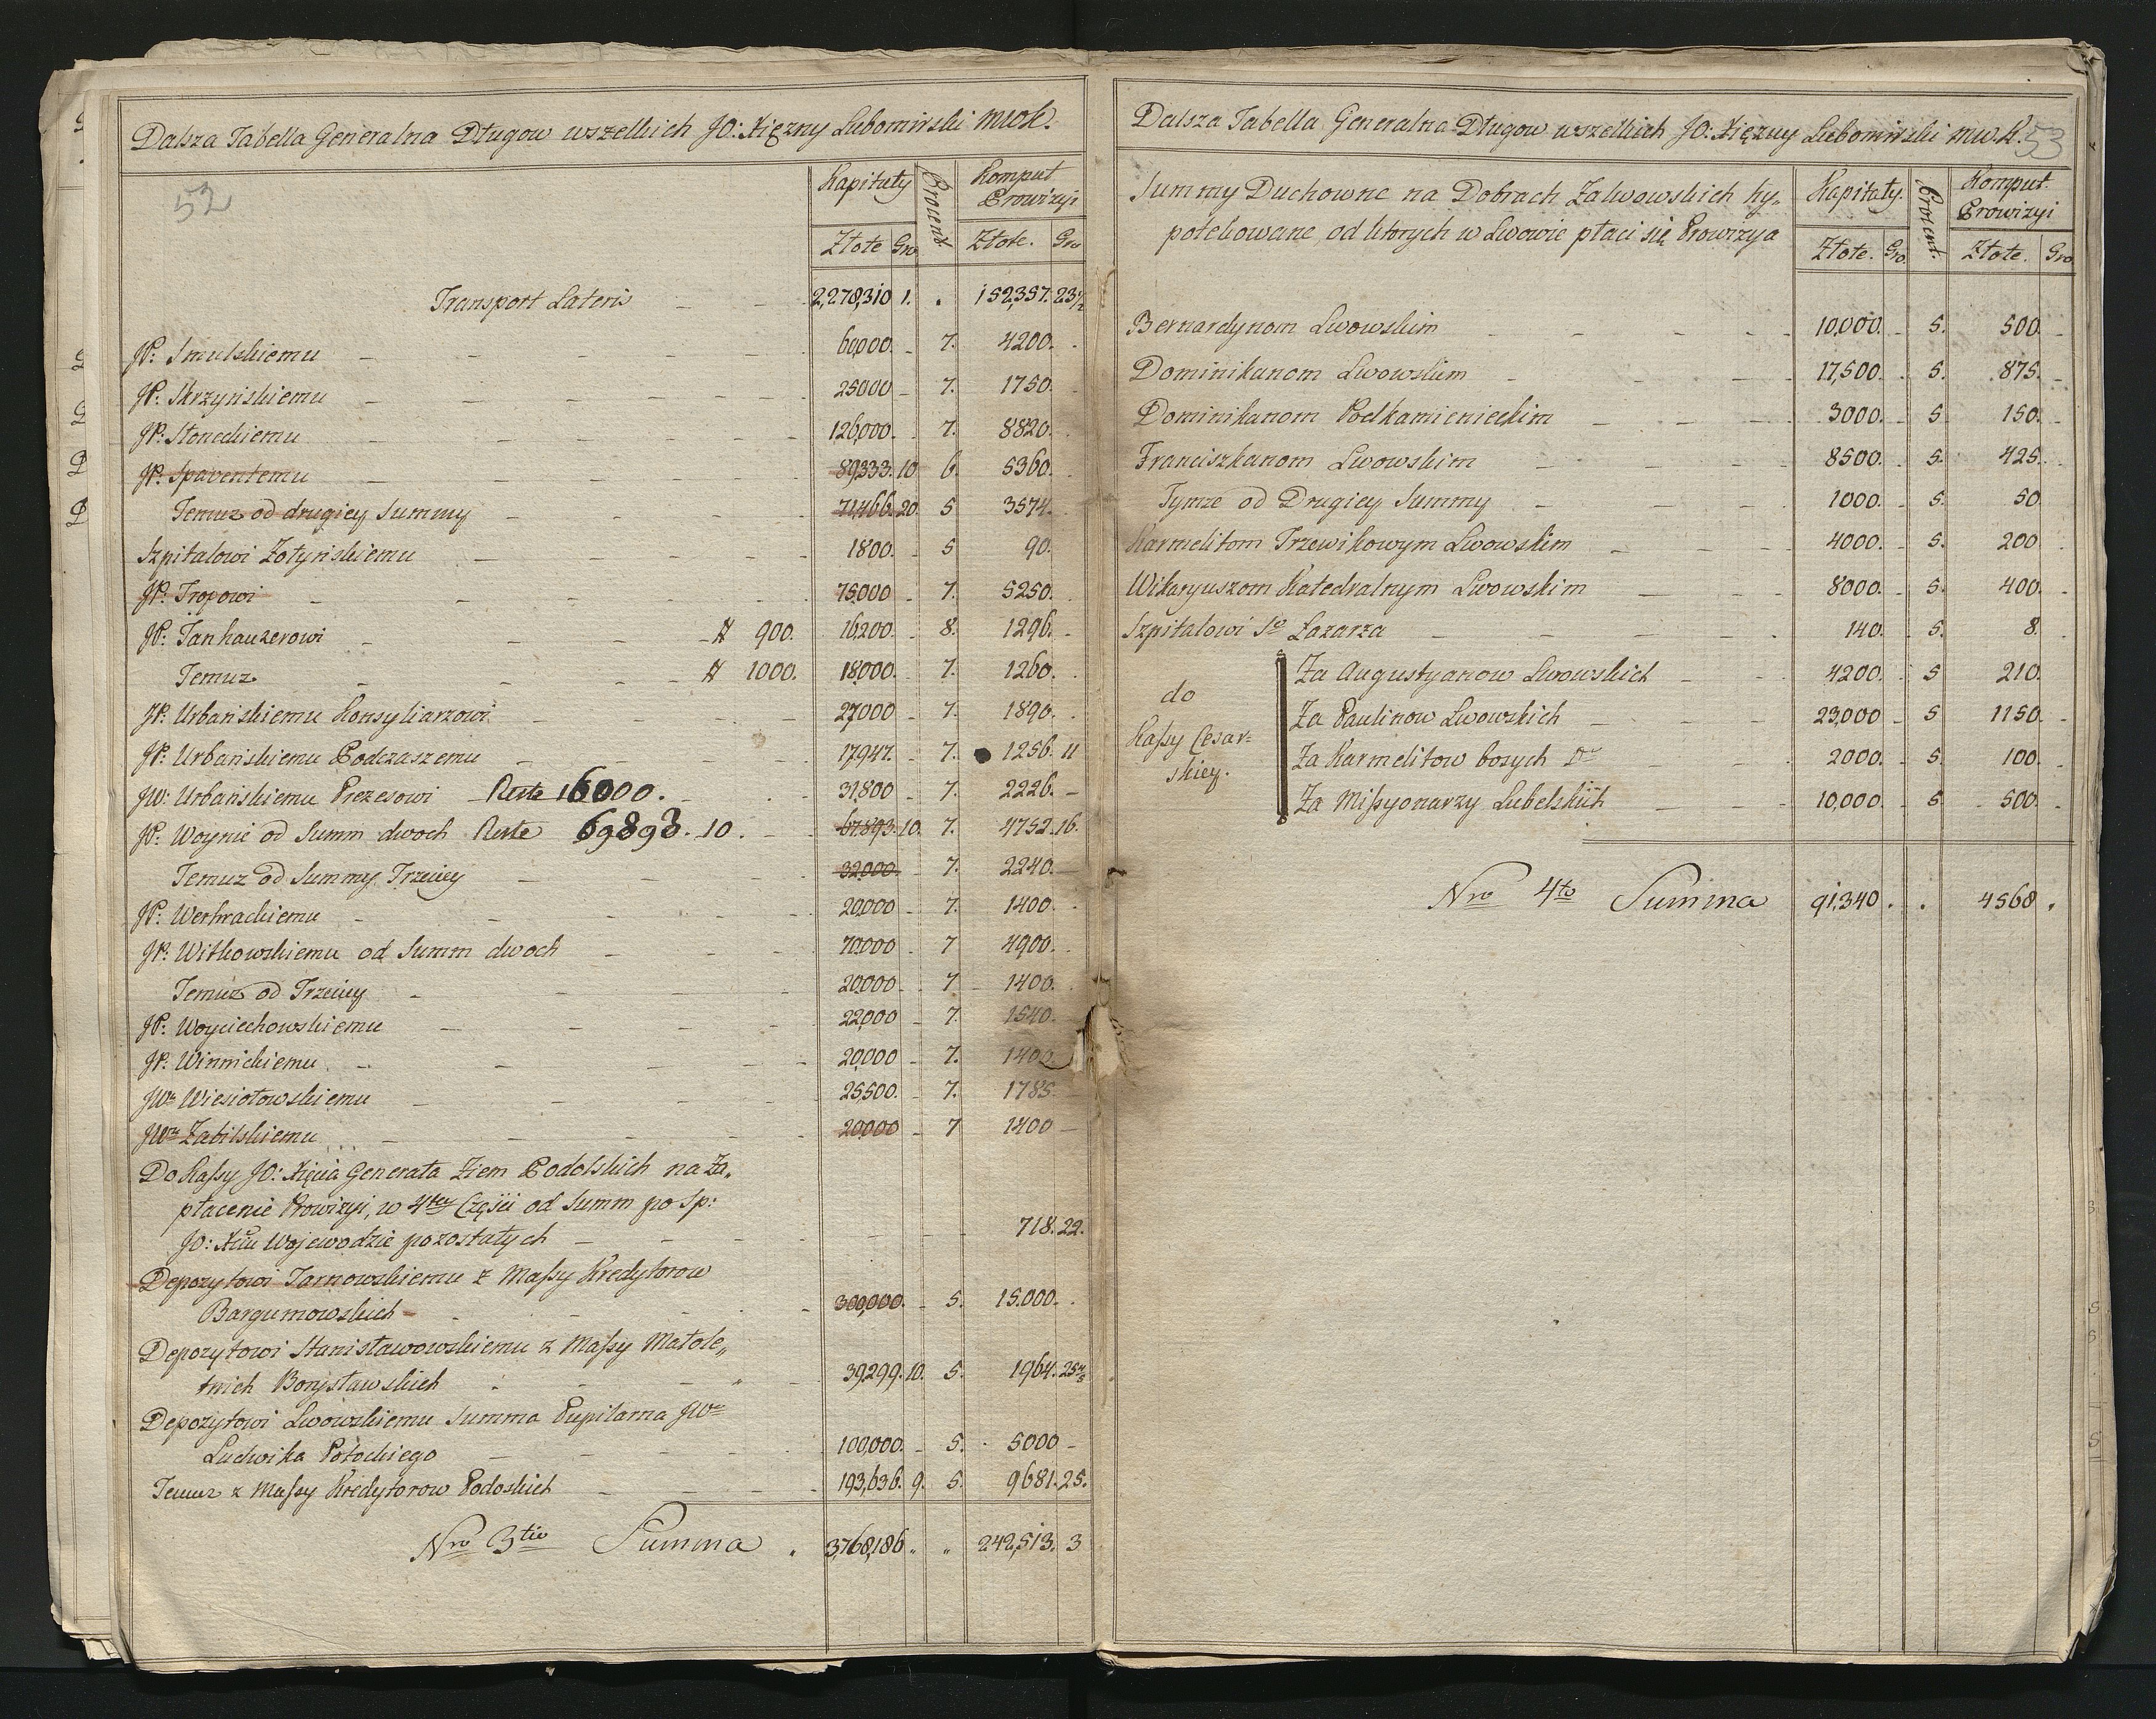 Dalsza Tabella Generalna Długow wszelkich JO: Xiężny Lubomirski mwk.
52
Kapituły Procent Komput Prowizyi
Złote Gro Złote. Gro
Transport Lateris 2,278,310 1. . 152,357. 23½
JP: Smulskiemu 60,000. 7. 4200.
JP: Skrzyńskiemu 25000 7. 1750.
JP: Słoneckiemu 126,000. 7. 8820.
JP: Spaventemu 89,333. 10 6. 5360.
Temuz od drugiey Summy 71,466. 20. 5 3574.
Szpitalowi Zołyńskiemu 1800. 5 90.
JP: Tropowi 75000 7. 5250.
JP: Tanhauzerowi # 900. 16,200 8. 1296.
Temuz # 1000. 18,000. 7. 1260.
JP: Urbańskiemu Konsyliarzowi 27,000 7. 1890.
JP: Urbańskiemu Podczaszemu 17,947. 7. 1256. 11
JW: Urbańskiemu Prezesowi Reste 16000. 31,800 7. 2226.
JP: Woynie od Summ dwoch Reste 69898. 10. 67,893. 10. 7. 4752. 16.
Temuz od Summy Trzeciey 32,000. 7. 2240.
JP: Werhrackiemu 20,000 7. 1400.
JP: Witkowskiemu od Summ dwoch 70,000 7 4900.
Temuz od Trzeciey 20,000 7 1400.
JP: Woyciechowskiemu 22,000 7. 1540.
JP: Winnickiemu 20,000 7. 1400.
JWu Wiesiołowskiemu 25,500. 7. 1785.
JWu Zabilskiemu 20,000 7 1400
Do Kassy JO: Xięcia Generała Ziem Podolskich na Za„
płacenie Prowizyi, w 4tey Części od Summ po Sp:
JO: Xciu Wojewodzie pozostałych 718. 22.
Depozytowi Tarnowskiemu z Massy Kredytorow
Bargumowskich 300,000. 5. 15.000.
Depozytowi Stanisławowskiemu z Massy Małole„
tnich Borysławskich 39,299. 10. 5. 1964. 25 4/5
Depozytowi Lwowskiemu Summa Pupilarna JWo
Ludwika Potockiego 100,000. 5. 5000
Temuz z Massy Kredytorow Podoskich 193,636. 9. 5. 9681. 25.
Nro 3tio Summa 3,768,186 „ „ 242,513. 3
Dalsza Tabella Generalna Długow wszelkich JO: Xiężny Lubomirski mw.k. 53
Summy Duchowne na Dobrach Zalwowskich hy„
potekowane, od ktorych w Lwowie płaci się Prowizya
Kapitały. Procent. Komput. Prowizyi
Złote. Gro. Złote. Gro
Bernardynom Lwowskim 10,000. 5. 500.
Dominikanom Lwowskim 17,500. 5. 875.
Dominikanom Podkamienieckim 3000. 5 150.
Franciszkanom Lwowskim 8500. 5. 425.
Tymze od Drugiey Summy 1000. 5. 50.
Karmelitom Trzewikowym Lwowskim 4000. 5. 200
Wikaryuszom Katedralnym Lwowskim 8000. 5. 400.
Szpitalowi So Lazarza 140. 5. 8.
do
Kassy Cesar=
skiey.
Za Augustyanow Lwowskich 4200. 5 210.
Za Paulinow Lwowskich 23,000 5 1150.
Za Karmelitow bosych Do 2000. 5. 100.
Za Missyonarzy Lubelskich 10,000. 5. 500.
Nro 4to Summa 91,340. . 4568.